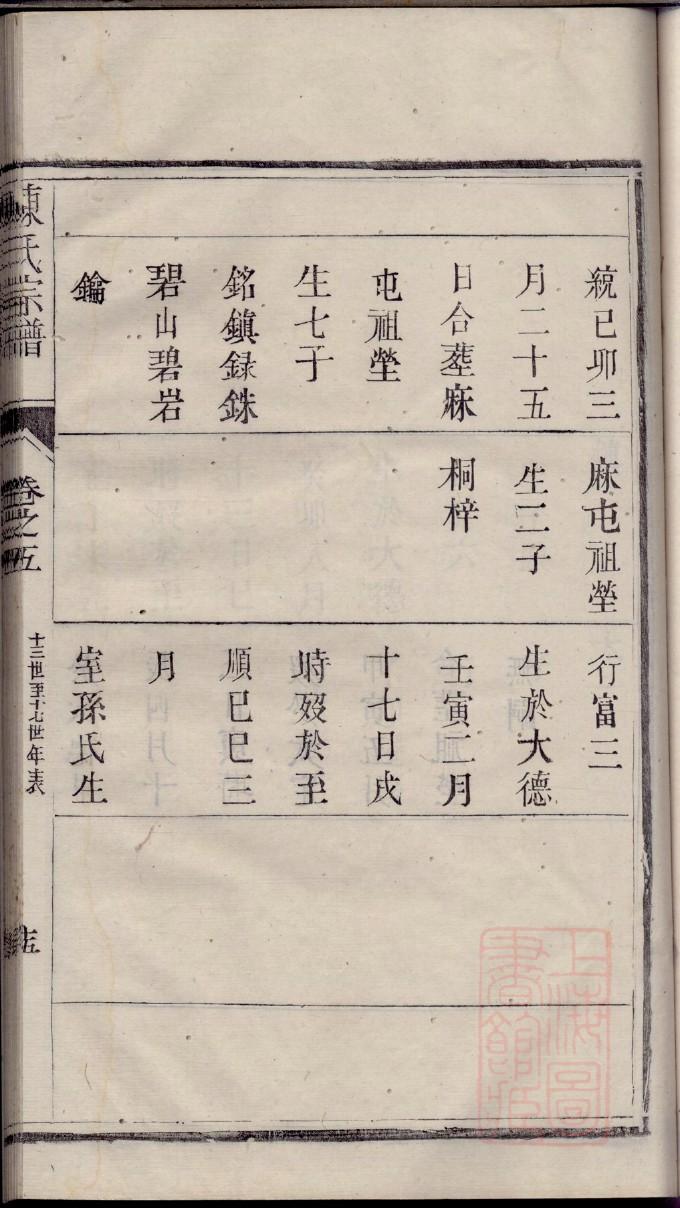 統己卯三
月二十五
日合塟麻
屯祖塋
生七子
銘鎮録銖
碧山碧岩
鑰
麻屯祖塋
生二子
桐梓
行富三
生於大德
壬寅二月
十七日戌
時殁於至
順巳巳三
月
室孫氏生
陳氏宗譜
卷之五
十三世至十七世年表
上海圖
書館藏